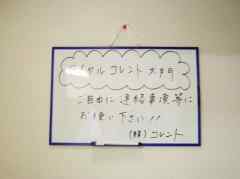 イヤル コレント 大手門
ご自由に 連絡事項等に
お使い下さい!!
(株) コレント